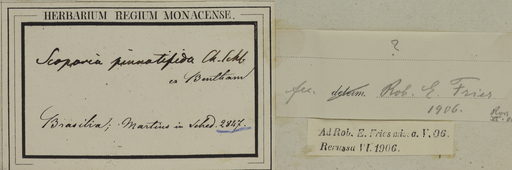 HERBARIUM REGIUM MONACENSE.
Scoparia pinnatifida Ch. Schl.
ex Bentham
Brasilia; Martius in Sched. 2847.
?
fec. determ. Rob. E. Fries
1906.
Ad Rob. E. Fries miss. a. V. 06.
Remissa VI. 1906.